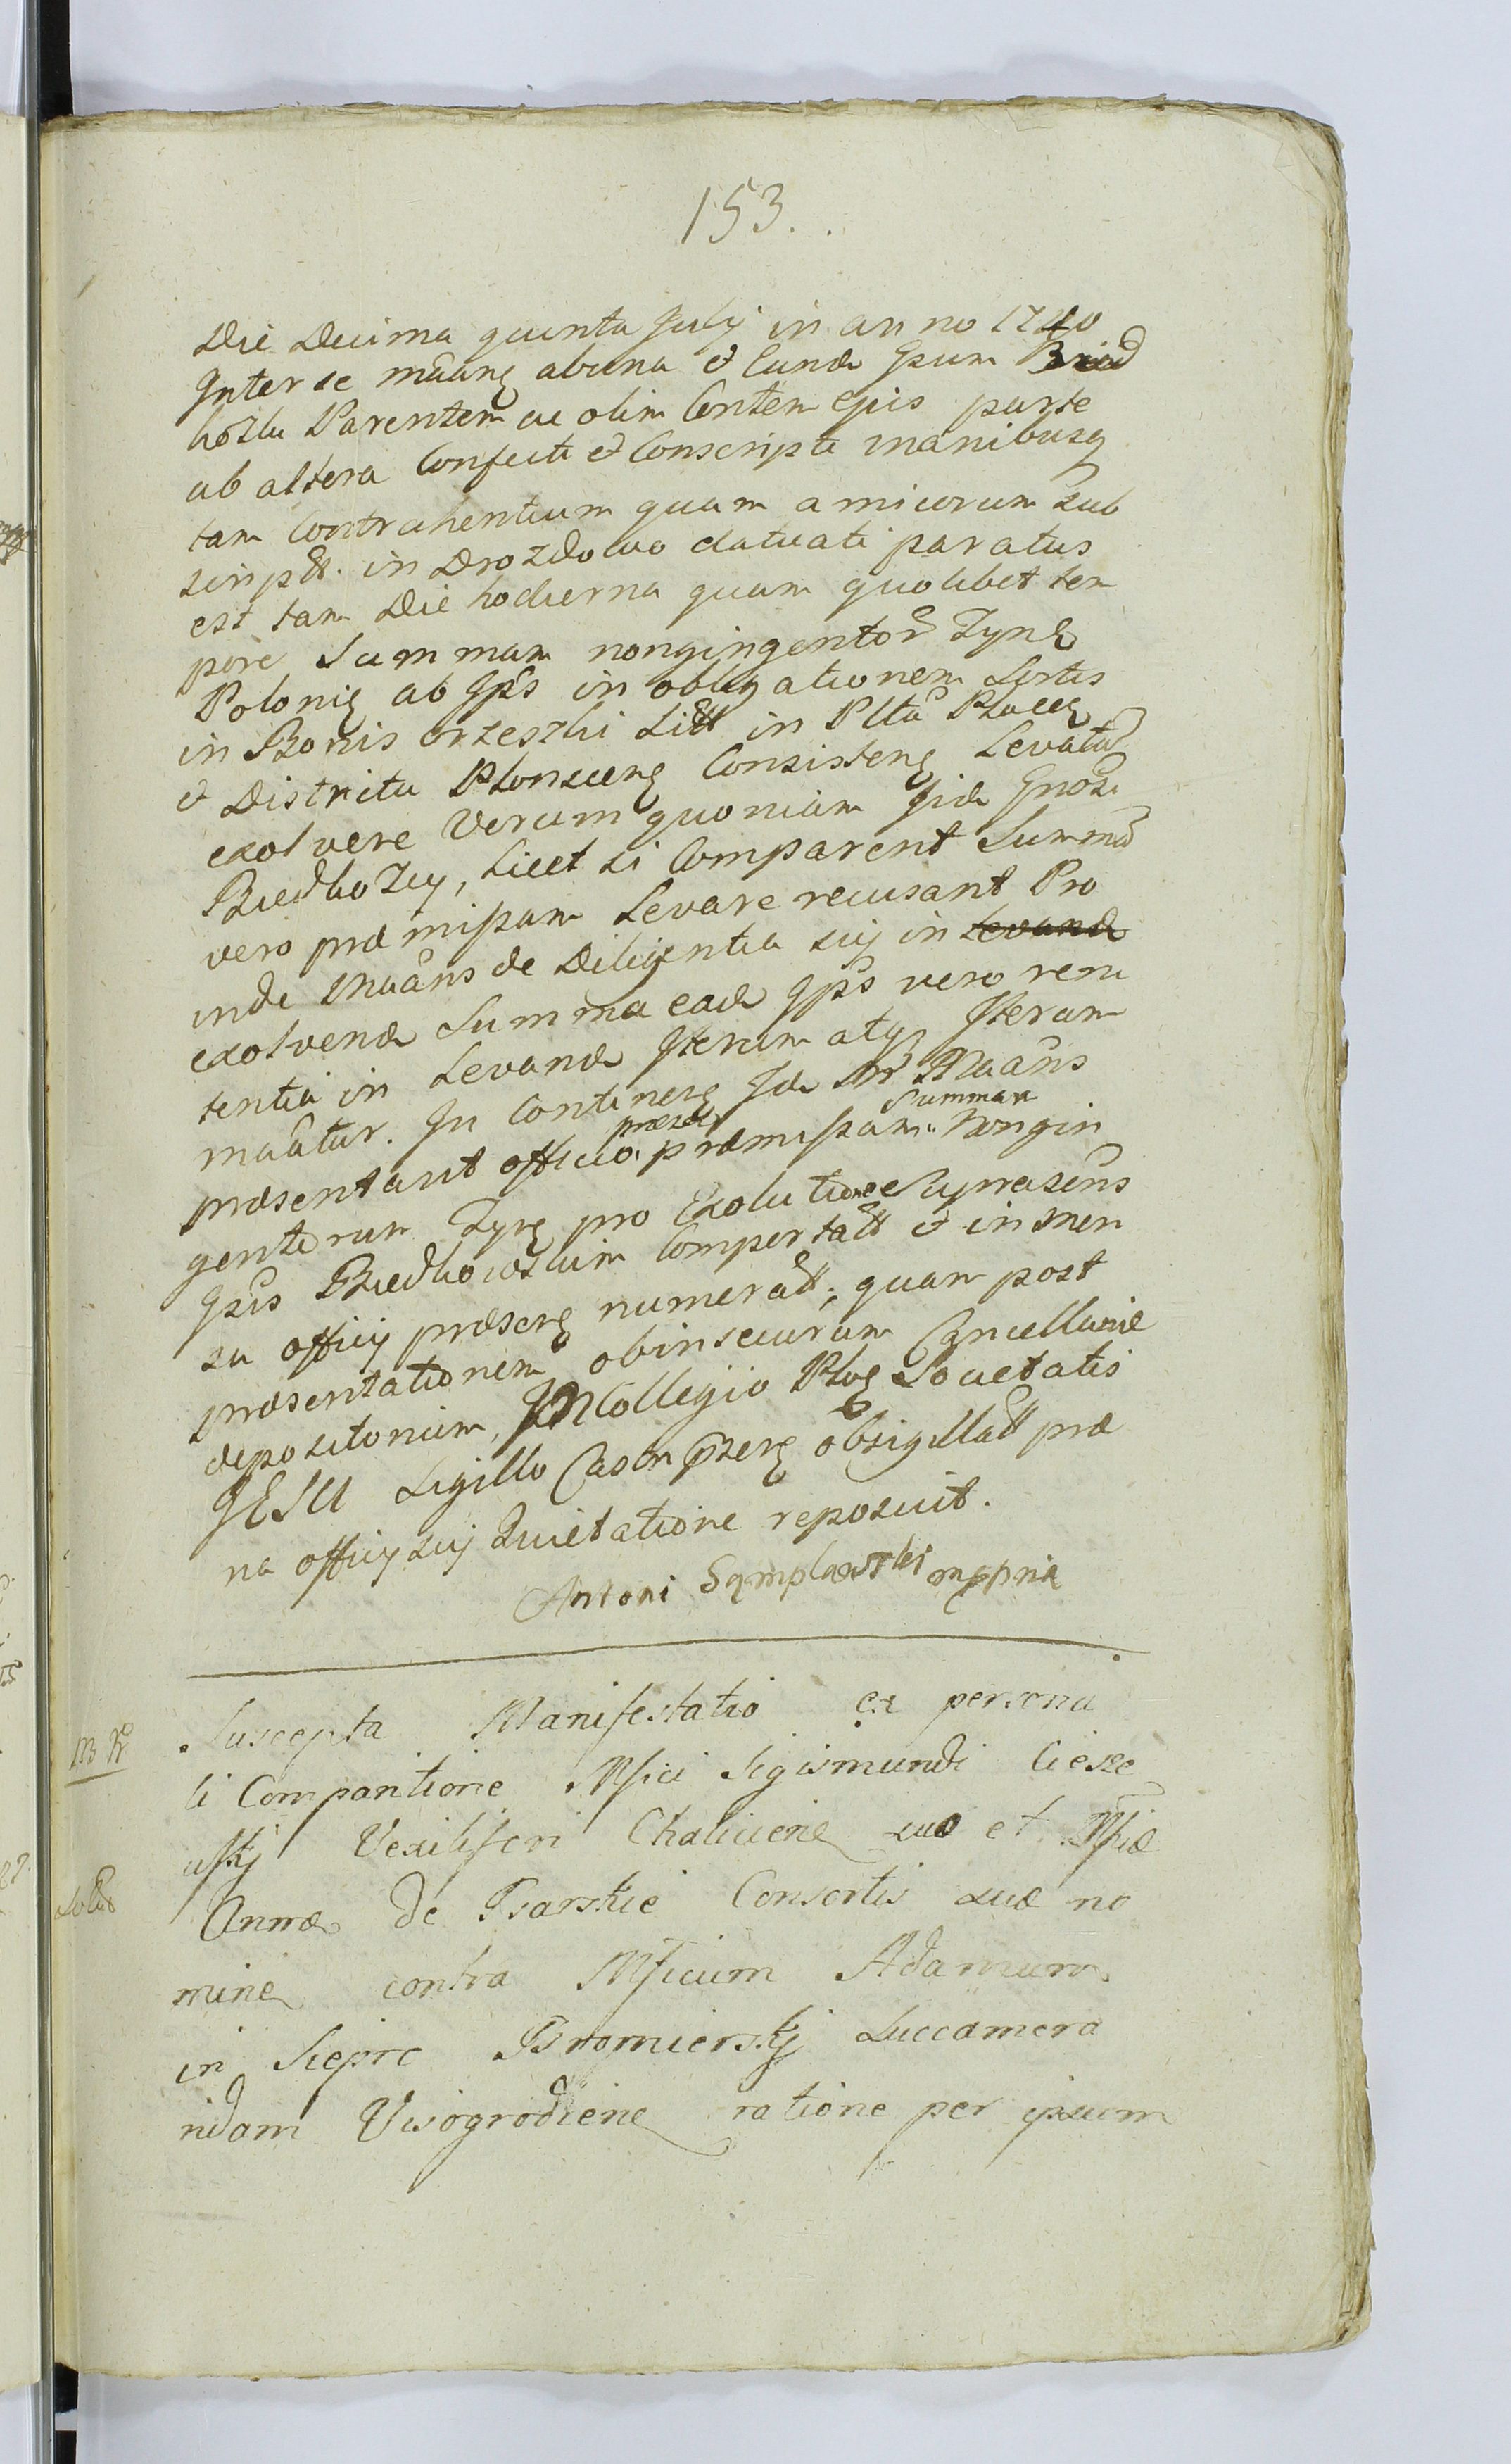 153.
Die Decima quinta Julij in anno 1740
Inter se maang abuna et Eund Gsum Bied
kozka Parentem ac olim Conten ejus parte
ab altera Confecti et Conscripti manibusq
tam Contrahentium quam amicorum sub
scriptt. in Drozdowo datuati paratus
est tam Die hodierna quam quolibet tem
pore Summam nongingentor Tynf
Polonig ab Gsis in obligationem Sortis
in Bonis Orzeszki Sitt in Pltu Ploceg
et Districtu Plonsceng Consisteng Levatu
exolvere Verum quoniam Jid Gnosi
Biedkozcy, Licet si Comparent Summa
vero præmissam Levare recusant Pro
inde Maans de Diligentia sui in Levand
exolvend Summa ead Gsis vero reni
tentia in Levand Iterum atq Iterum
maatur. In Contineng Id Mr Maans
præsentavit officio præs præmissam Summam Nongin
gentorum Tynf pro Exolutione Suprasens
Gsis Biedkowskim Comportatt et in men
sa officij præseng numeratt; quam post
præsentationem ob insecuram Cancellariæ
depositorium, In Collegio Plog Societatis
JESU Sigillo Castr pseng obsigillatt præ
via officij sui Quietatione reposuit.
Antoni Sąmplawski mppria
M K
Suscepta Manifestatio ex persona
li Comparitione Mfici Sigismundi Ciesze
wskj Vexiliferi Chaliciens suo et Mficæ
Annæ de Psarskie Consortis suæ no
Solut
mine contra Mficum Adamum
in Siepre Bromierskj Succamera
ridam Visogrodiens ratione per ipsum